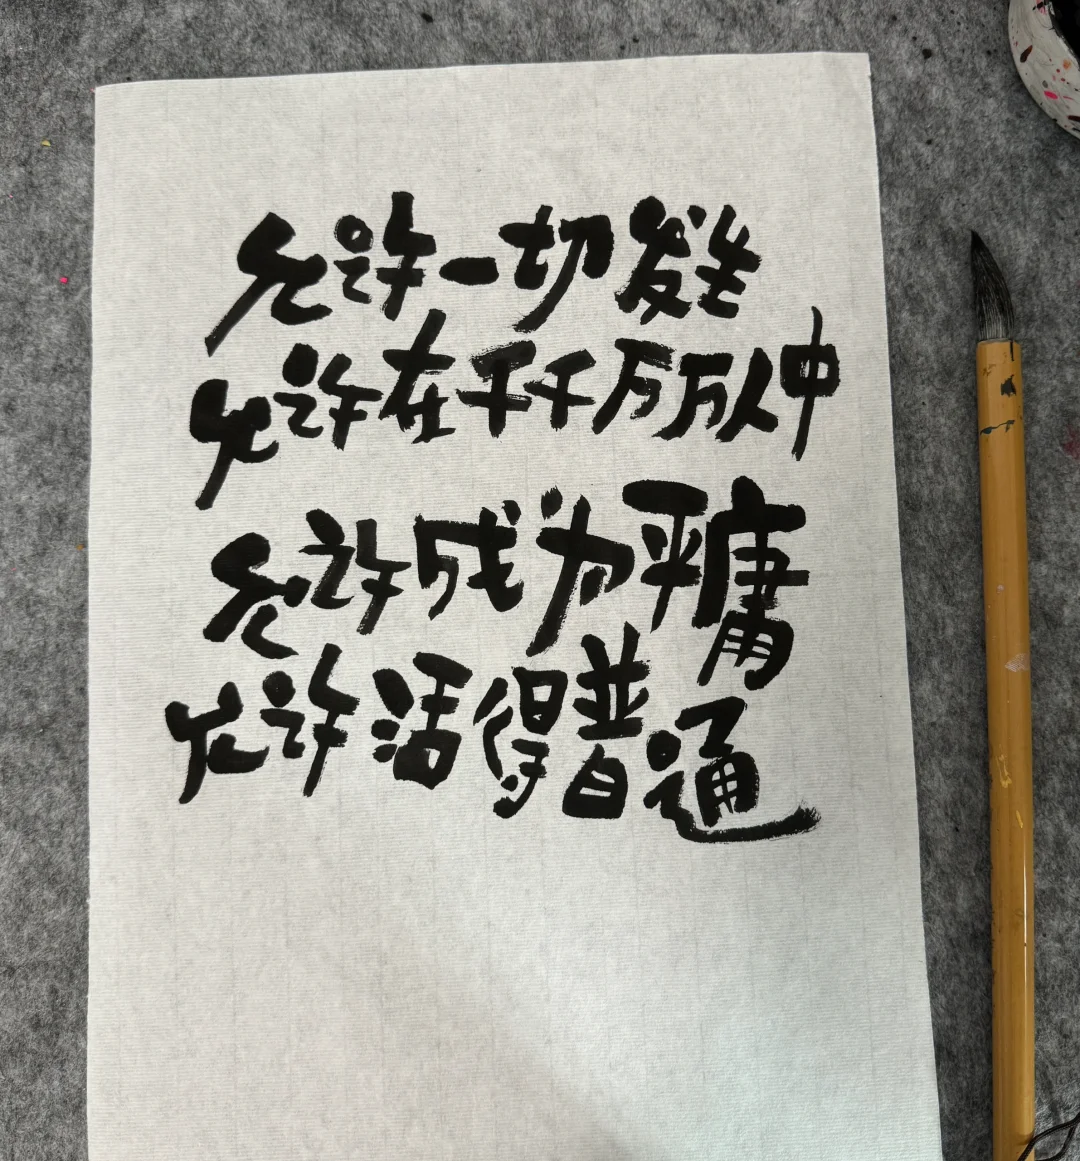 允许一切发生
允许在千千万万人中
允许成为平庸
允许活得普通